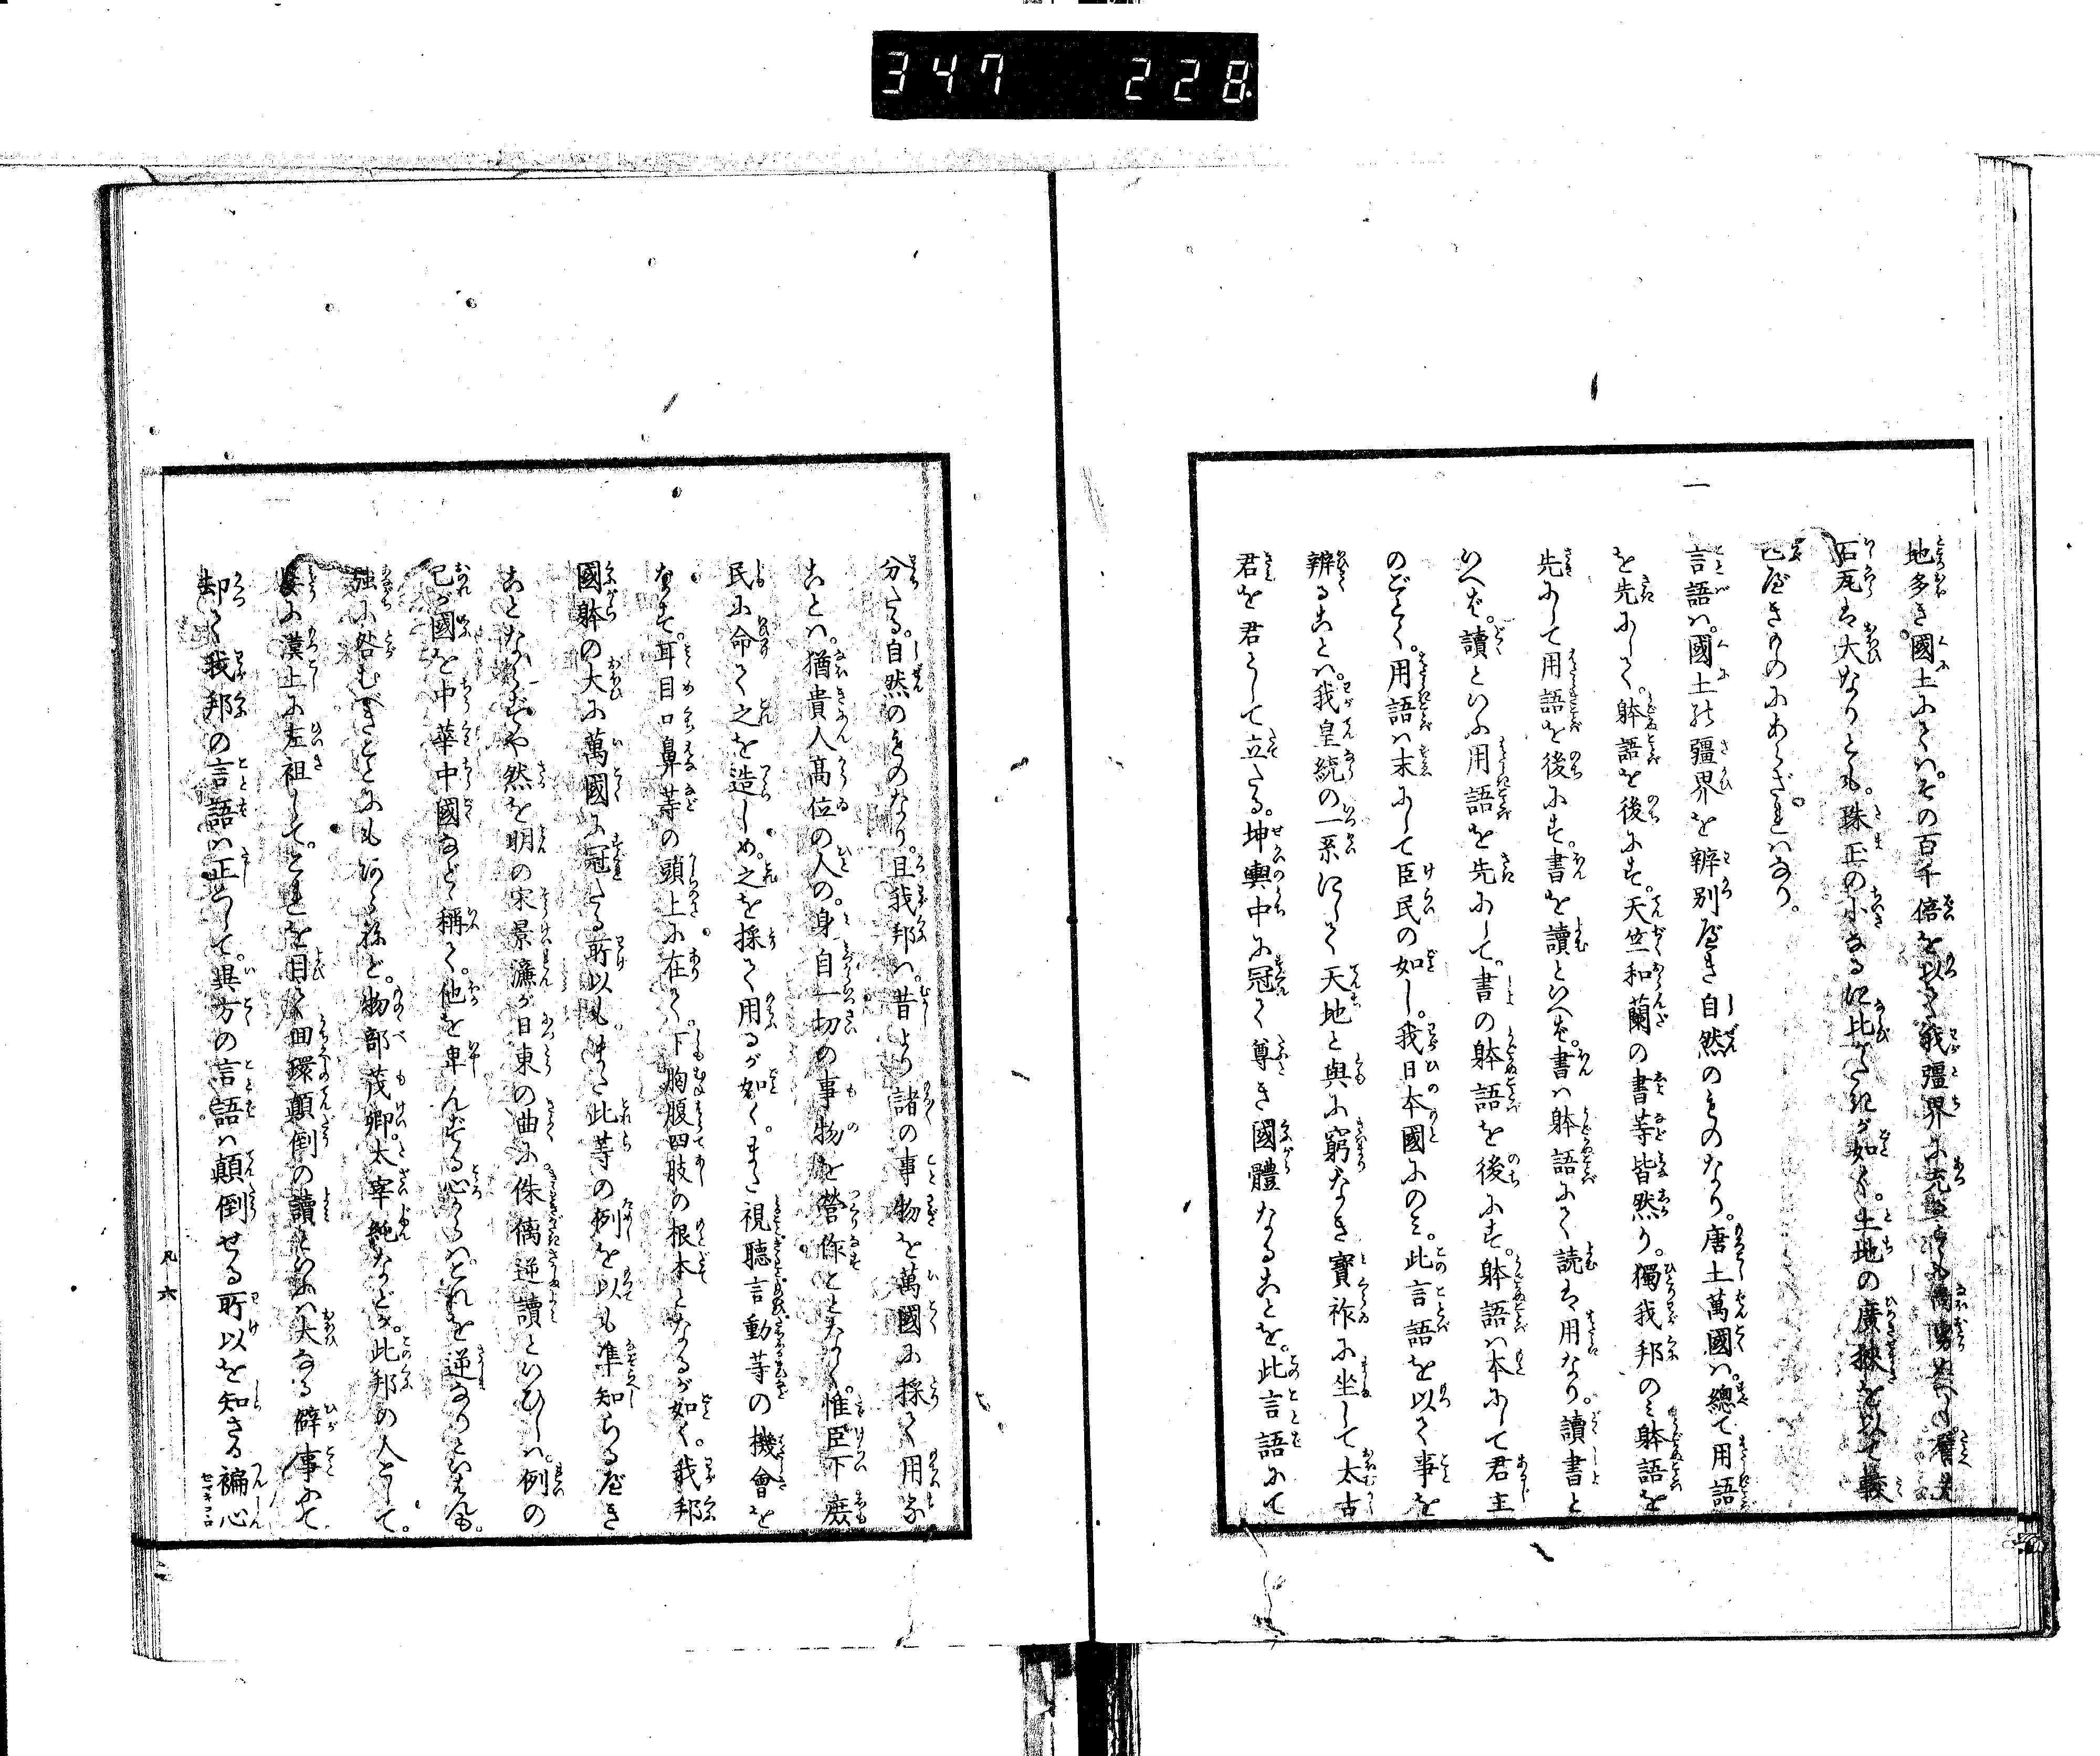 347 228
地多き國土にてハ。その百千倍を以て我疆界に充
石瓦は大なりとも。珠玉の小なるに比べたきが如く。土地の廣狹を以て較
ぶべきものにあらざれバなり。
一 言語ハ。國土の疆界を辨別べき自然のものなり。唐土萬國ハ。總て用語
を先にして。躰語を後にす。天竺和蘭の書等皆然り。獨我邦のミ躰語を
先にして用語を後にす。書を讀といへば。書ハ躰語にて読は用なり。讀書と
いへば。讀といふ用語を先にして。書の躰語を後にす。躰語ハ本にして君主
のごとく。用語ハ末にして臣民の如し。我日本國にのミ。此言語を以て事を
辨ることハ。我皇統の一系にして天地と與に窮なき寶祚に坐して太古
君を君として立たる。坤輿中に冠て尊き國體なることを。此言語にて
分たる。自然のものなり。且我邦ハ。昔より諸の事物を萬國に採て用ふ
ることハ。猶貴人高位の人の。身自一切の事物を營作ことなく。惟臣下庶
民に命て之を造しめ。之を採て用るが如く。また視聽言動等の機會を
なす。耳目口鼻等の頭上に在て。下胸腹四肢の根本となるが如く。我邦
國躰の大に萬國に冠たる所以も。また此等の例を以も準知らるべき
ことならずや然を明の宋景濂が日東の曲に。侏離逆讀といひしハ。例の
己が國を中華中國などゝ稱て。他を卑んずる心からハ。これを逆なりといはんも。
強に咎むべきことにもあらねど。物部茂卿太宰純などが。此邦の人として。
妄に漢土に左袒して。これを目て回環顛倒の讀といふハ大なる僻事にて
却て我邦の言語ハ正しくして。異方の言語ハ顛倒せる所以を知ざる褊心
セマキココロ
凡 六